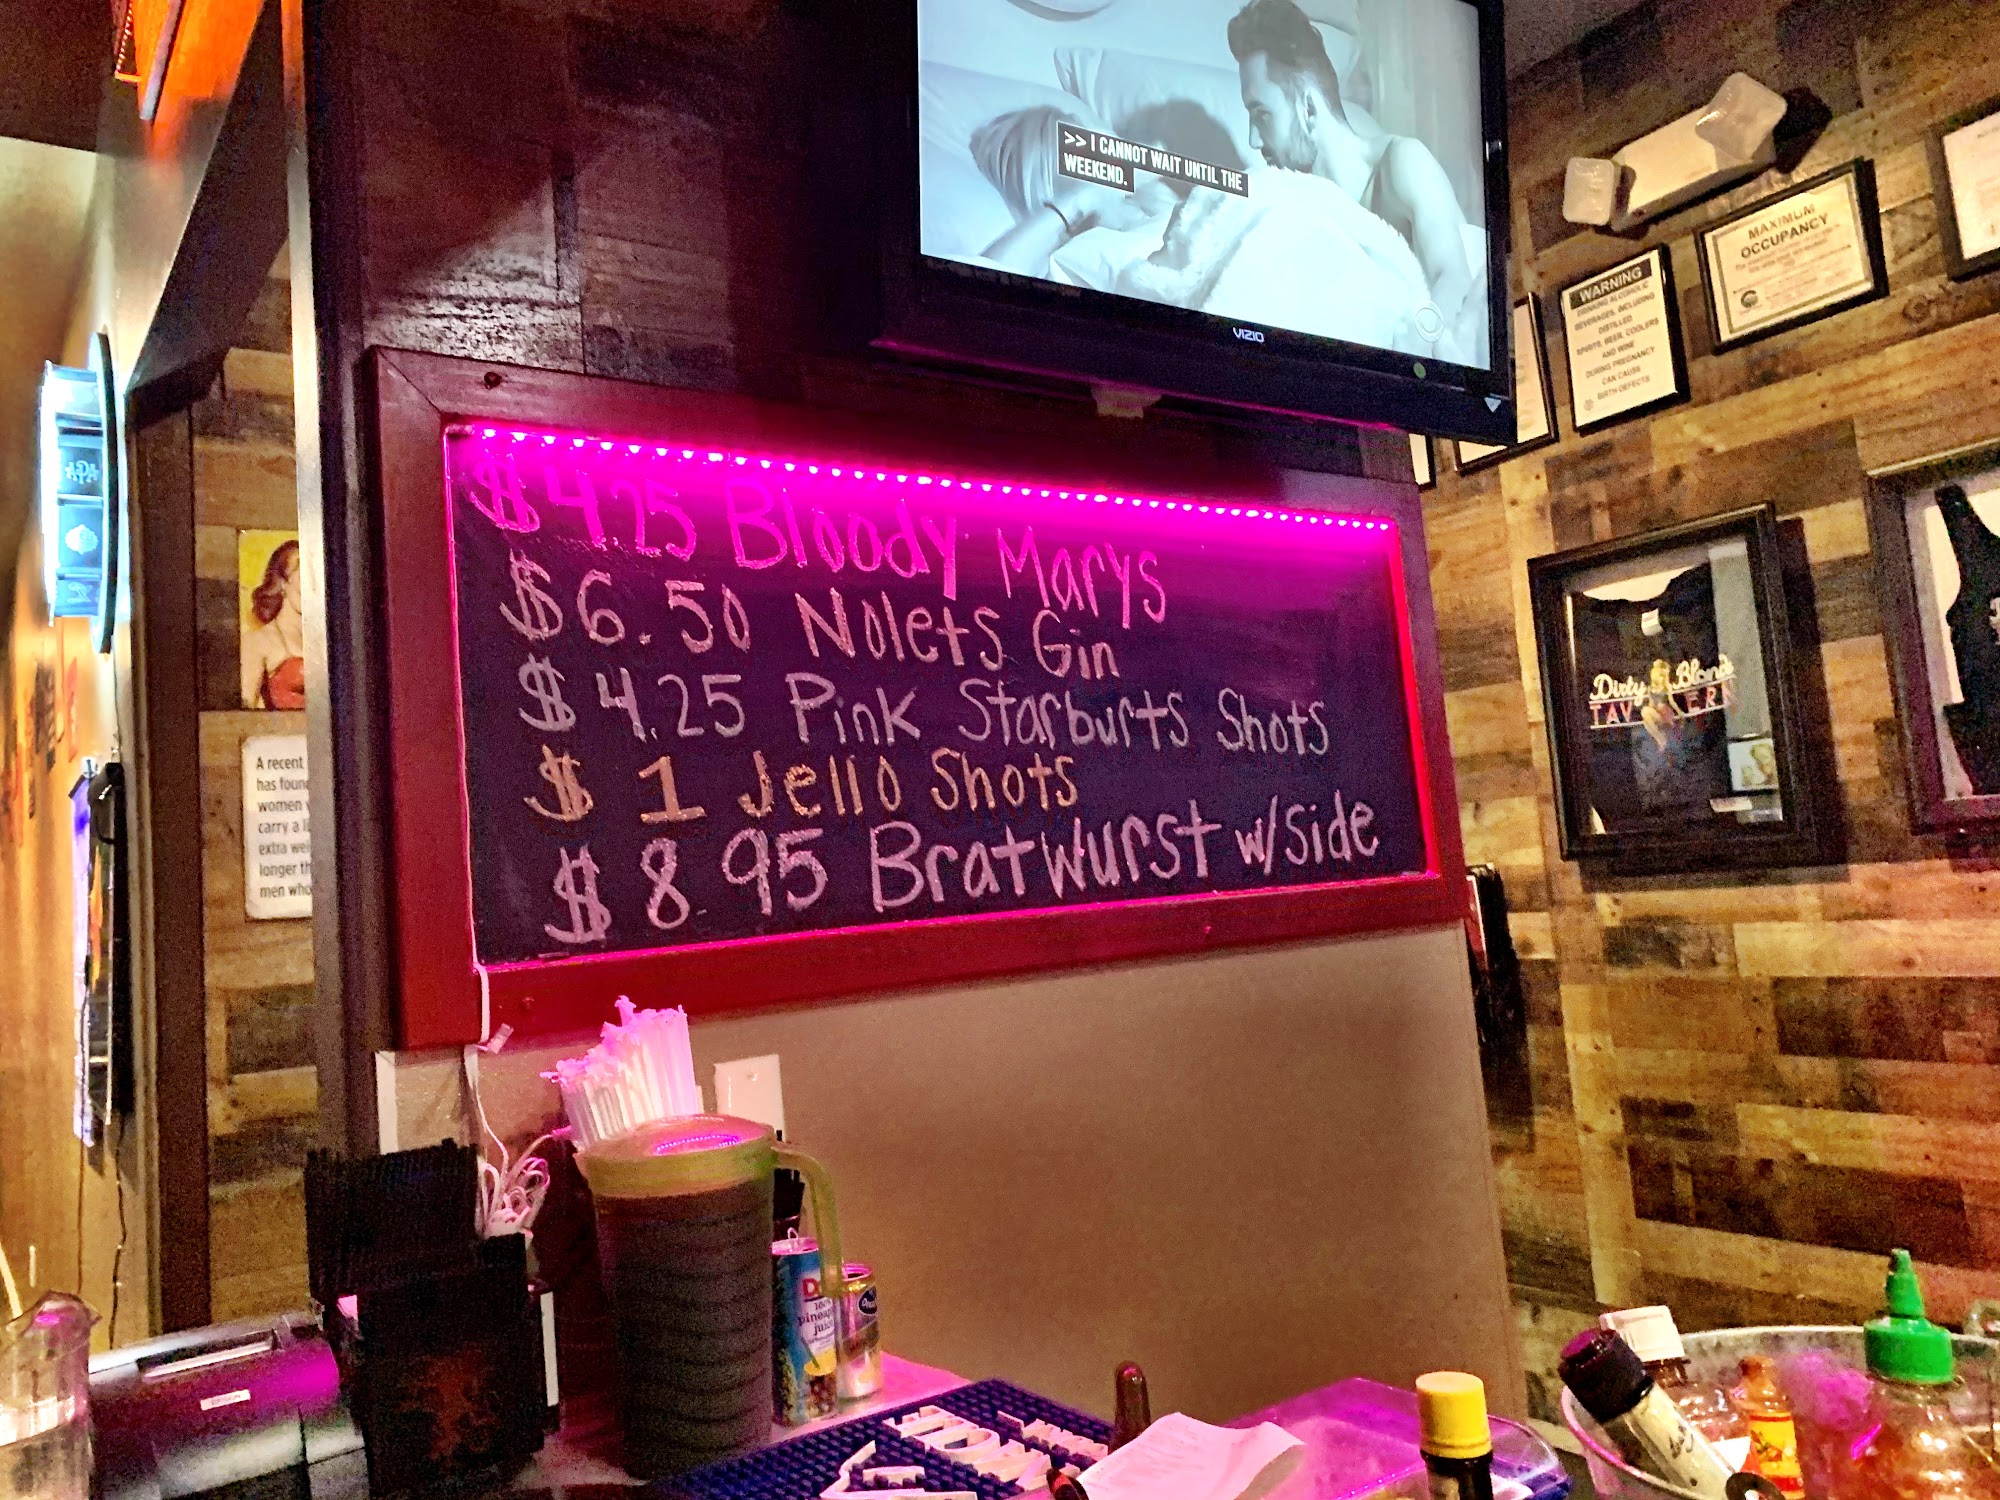 >> I CANNOT WAIT UNTIL THE
WEEKEND.
VIZIO
$4.25 Bloody Marys
$6.50 Nolets Gin
$4.25 Pink Starburts Shots
$1 Jello Shots
$8.95 Bratwurst w/side
WARNING
DRINKING ALCOHOLIC
BEVERAGES, INCLUDING
DISTILLED
SPIRITS, BEER, COOLERS
AND WINE
DURING PREGNANCY
CAN CAUSE
BIRTH DEFECTS
MAXIMUM
OCCUPANCY
Dirty Blonde
TAVERN
A recent
has foun
women
carry a li
extra wei
longer th
men who
EPSON
100%
pineap
juice